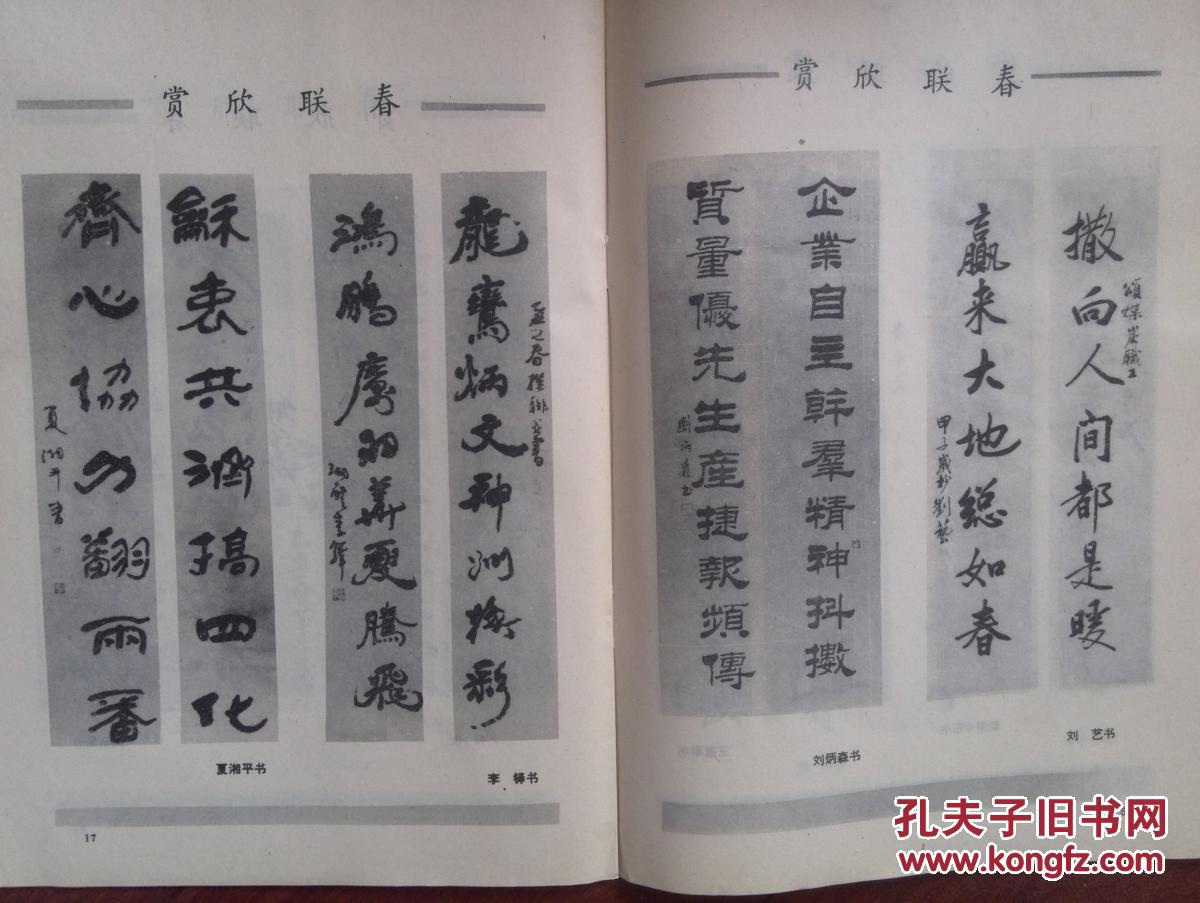 春联欣赏
撒向人间都是暖
頌煤炭職工
贏来大地總如春
甲子歲杪劉藝
刘 艺书
企業自主幹羣精神抖擻
質量優先生産捷報頻傳
劉炳森書
刘炳森书
春联欣赏
龍鸞炳文神洲掞彩
鴻鵬奮翔華夏騰飛
李 铎书
龢衷共濟搞四化
齊心協力翻兩番
夏湘平書
夏湘平书
17
孔夫子旧书网
www.kongfz.com